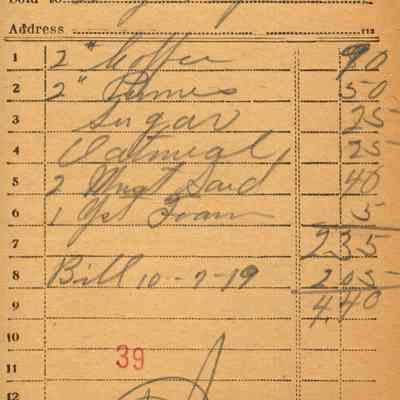 Sold to
Address
1 2 " Coffee 90
2 2 " Prunes 50
3 Sugar 25
4 Oatmeal 25
5 2 40
6 1 Yst Foam 5
7 2 35
8 Bill 10-7-19 2 05
9 4.40
10
39
11
12